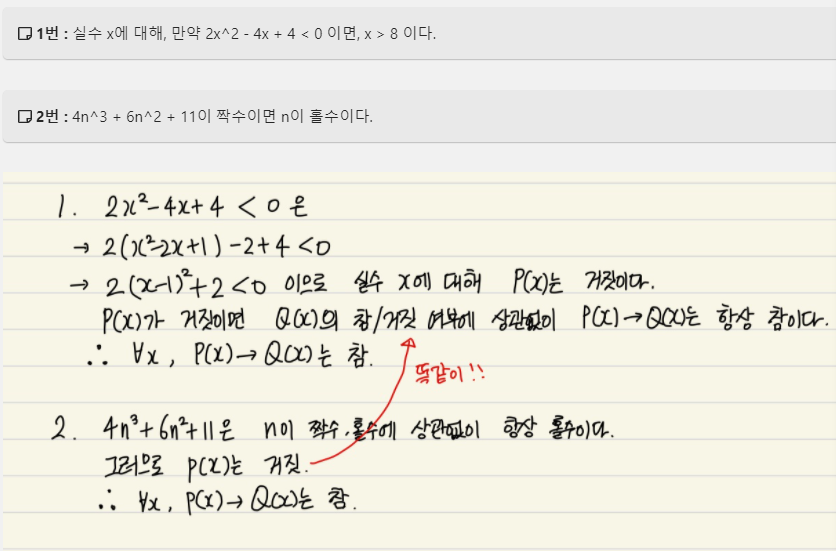 1번 : 실수 x에 대해, 만약 2x^2 - 4x + 4 < 0 이면, x > 8 이다.
2번 : 4n^3 + 6n^2 + 11이 짝수이면 n이 홀수이다.
1. 2x²-4x+4 < 0 은
→ 2(x²-2x+1) -2+4 <0
→ 2(x-1)²+2 <0 이므로 실수 x에 대해 P(x)는 거짓이다.
P(x)가 거짓이면 Q(x)의 참/거짓 여부에 상관없이 P(x)→Q(x)는 항상 참이다.
∴ ∀x, P(x)→Q(x)는 참.
똑같이!!
2. 4n³+6n²+11은 n이 짝수.홀수에 상관없이 항상 홀수이다.
그러므로 P(x)는 거짓.
∴ ∀x, P(x)→Q(x)는 참.